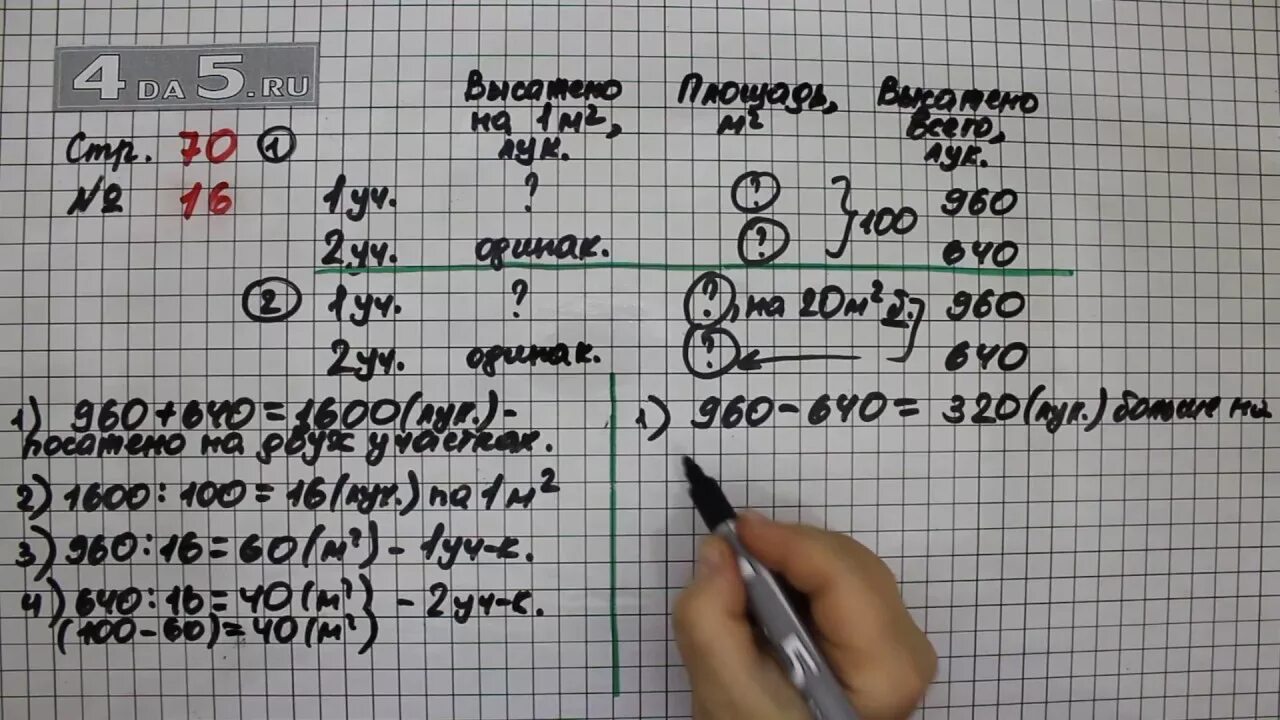 4DA5.RU
Стр. 70 ①
№ 16
Высатено на 1м², лук.
Площадь, м²
Высатено всего, лук.
1уч. ? ? } 100 960
2уч. одинак. ? 640
② 1уч. ? ?, на 20м² б. 960
2уч. одинак. ? 640
1) 960+640=1600(лук.)-
посатено на двух участках.
2) 1600:100=16(лук.) на 1м²
3) 960:16=60(м²)-1уч-к.
4) 640:16=40(м²) -2уч-к.
(100-60)=40(м²)
1) 960-640= 320(лук.) больше на